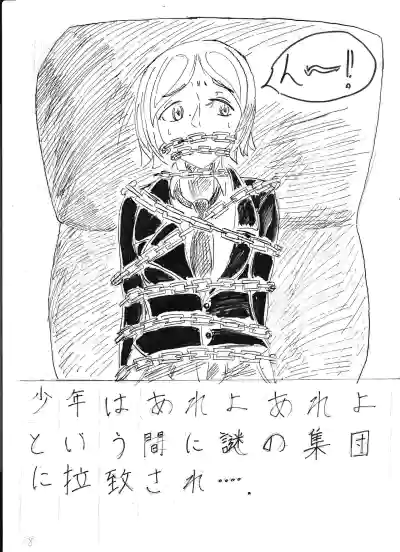 ん〜!
少年はあれよあれよ
という間に謎の集団
に拉致され‥‥.
8